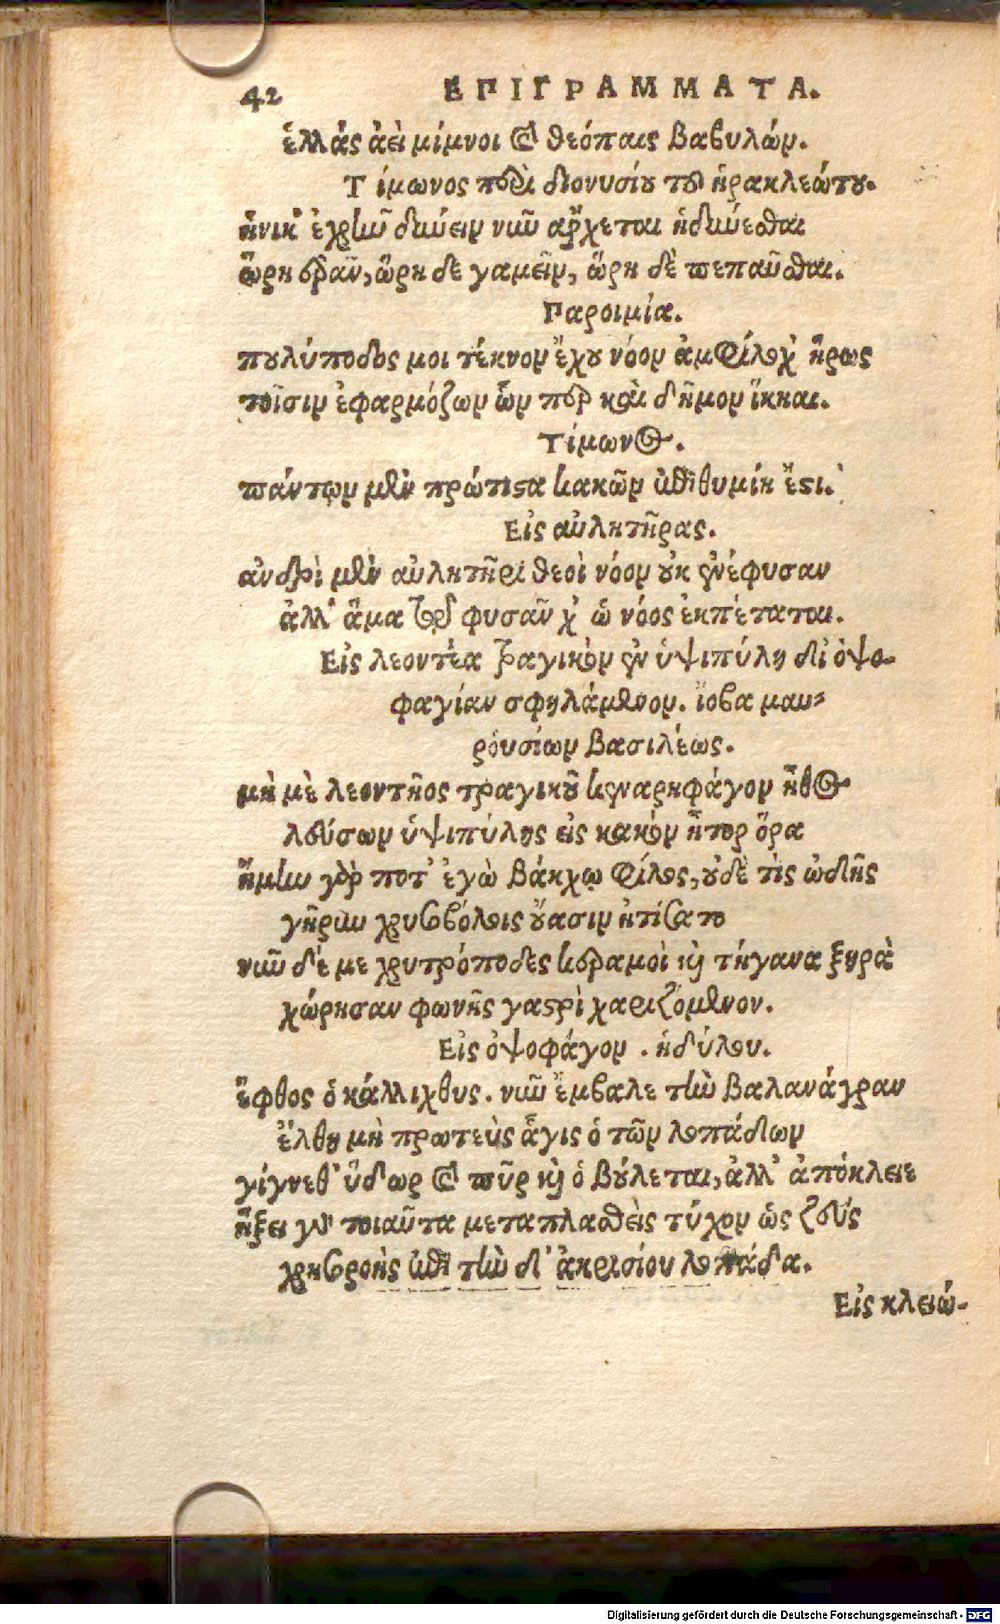 42 ΕΠΙΓΡΑΜΜΑΤΑ.
ἑλλὰς ἀεὶ μίμνοι καὶ θεόπαις βαβυλών.
Τίμωνος περὶ διονυσίου τοῦ ἡρακλεώτου.
ἡνίκ' ἐχρῆν δύνειν νῦν ἄρχεται ἡδύνεσθαι
ὥρη ἐρᾶν, ὥρη δὲ γαμεῖν, ὥρη δὲ πεπαῦσθαι.
Παροιμία.
πουλύποδός μοι τέκνον ἔχου νόον ἀμφίλοχ' ἥρως
τοῖσιν ἐφαρμόζων ὧν περ καὶ δῆμον ἵκηαι.
Τίμωνος.
πάντων μὲν πρώτιστα κακῶν ἐπιθυμίη ἔστι.
Εἰς αὐλητῆρας.
ἀνδρὶ μὲν αὐλητῆρι θεοὶ νόον οὐκ ἐνέφυσαν
ἀλλ' ἅμα τῷ φυσᾶν χ' ὠ νόος ἐκπέταται.
Εἰς λεοντέα τραγικὸν ἐν ὑψιπύλῃ δι' ὀψο-
φαγίαν σφηλάμενον. ἰόβα μαυ-
ρουσίων βασιλέως.
μή με λεοντῆος τραγικοῦ κεναρηφάγον ἦθος
λεύσων ὑψιπύλης εἰς κακὸν ἦτορ ὅρα
ἤμην γάρ ποτ' ἐγὼ βάκχῳ φίλος, οὐδέ τις ὠδῆς
γῆρυν χρυσοβόλοις οὔασιν ἠτίσατο
νῦν δέ με χυτρόποδες κέραμοι καὶ τήγανα ξηρὰ
χώρησαν φωνῆς γαστρὶ χαριζόμενον.
Εἰς ὀψοφάγον. ἡδύλου.
ἕφθος ὁ κάλλιχθυς. νῦν ἔμβαλε τὴν βαλανάγραν
ἔλθῃ μὴ πρωτεὺς ἆγις ὁ τῶν λοπάδων
γίγνεθ' ὕδωρ καὶ πῦρ καὶ ὃ βούλεται, ἀλλ' ἀπόκλειε
ἥξει γὰρ τοιαῦτα μεταπλασθεὶς τύχον ὡς ζεὺς
χρυσορόης ἐπὶ τὴν δ' ἀκρισίου λοπάδα.
Εἰς κλειώ-
Digitalisierung gefördert durch die Deutsche Forschungsgemeinschaft - DFG